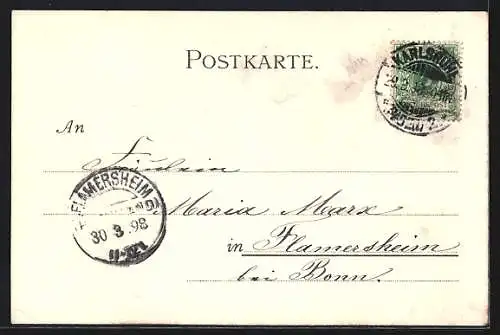 KARLSRUHE
POSTKARTE.
An
Fräulein
Maria Marx
in Flamersheim
bei Bonn.
FLAMERSHEIM
30 3 98